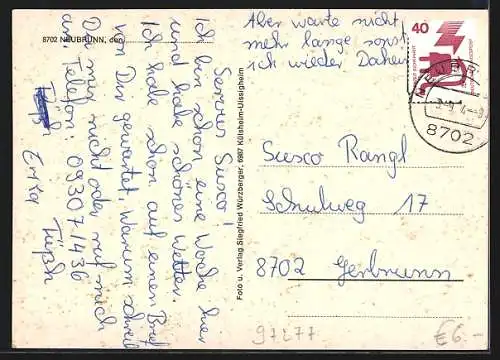 8702 NEUBRUNN, den
Servus Susco!
Ich bin schon eine Woche hier
und habe schönes Wetter.
Ich habe schon auf einen Brief
von Dir gewartet, Warum schreib
Du mir nicht oder ruf mich
an. Telefon: 09307/436
Tüßch
Erika
Aber warte nicht
mehr lange sonst
ich wieder Daheim
Foto u. Verlag Siegfried Würzberger, 6987 Külsheim-Uissigheim
40
8702
Susco Rangl
Schulweg 17
8702 Gerbrunn
97277
€6.-